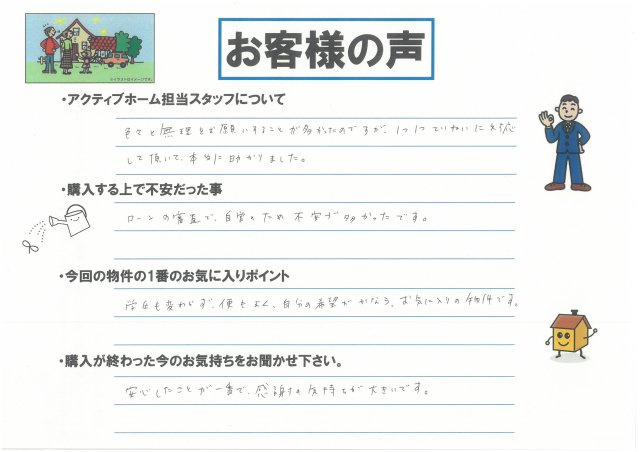 お客様の声
※イラストはイメージです。
・アクティブホーム担当スタッフについて
色々と無理をお願いすることが多かったのですが、1つ1つていねいに対応
して頂いて、本当に助かりました。
・購入する上で不安だった事
ローンの審査で、自営のため不安が多かったです。
・今回の物件の1番のお気に入りポイント
学区も変わらず、便もよく、自分の希望がかなう、お気に入りの物件です。
・購入が終わった今のお気持ちをお聞かせ下さい。
安心したことが一番で、感謝の気持ちが大きいです。